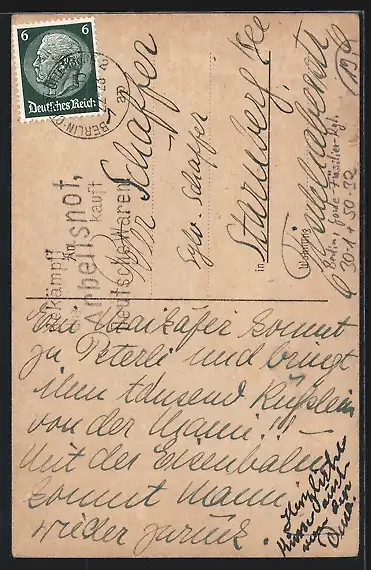 6 6
Deutsches Reich
BERLIN-C
Bekämpft
Arbeitsnot,
kauft
Deutsche Waren
Schäffer
Schäffer
in Starnberg See
Wohnung
Berlin Garde Füsilier Rgt.
30-1 + 50-32
Ein Maikäfer kommt
zu Peterli und bringt
ihm tausend Küsslein
von der Mami!!
Mit der Eisenbahn
kommt Mami
wieder zurück.
Herzliche
von der
Oma.